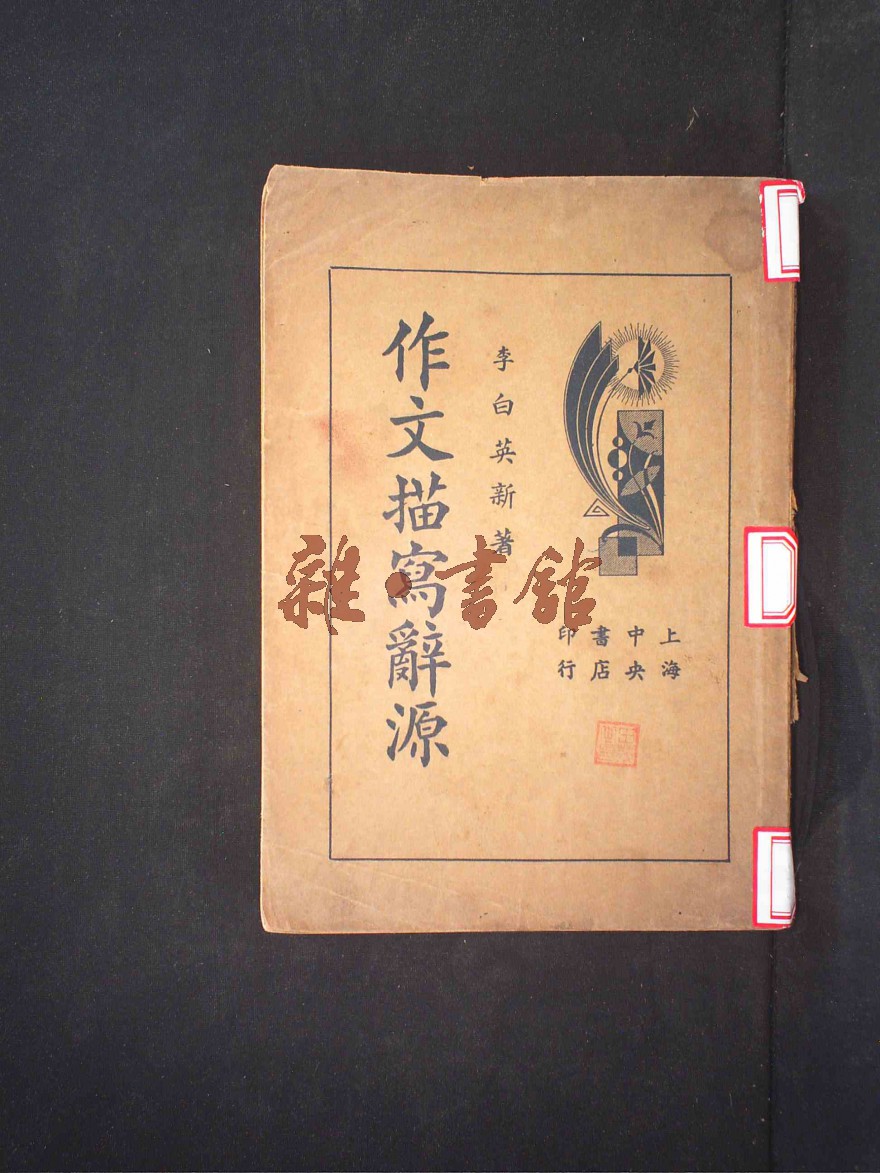 上海
中央
書店
印行
李白英新著
作文描寫辭源
雜·書館